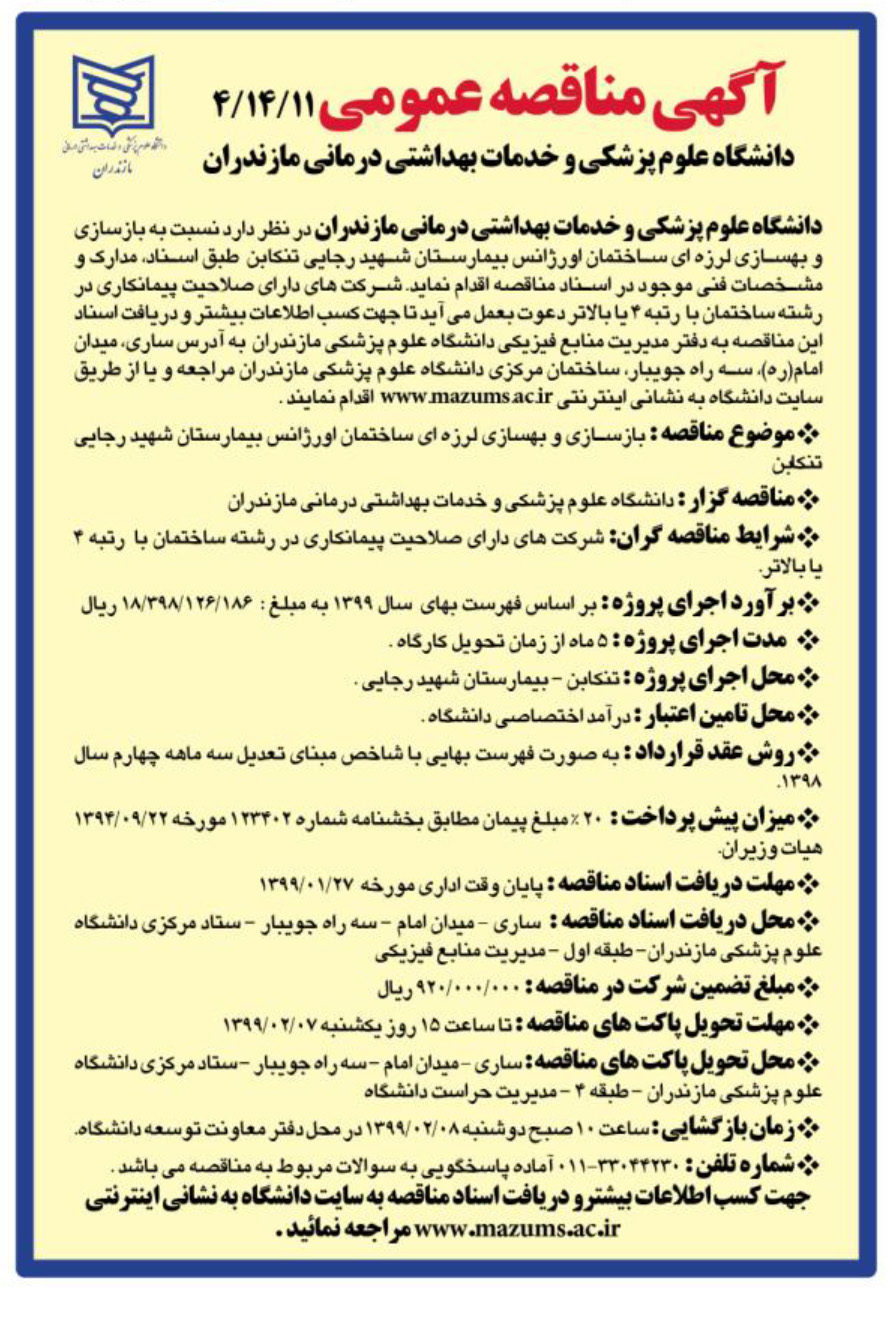 آگهی مناقصه عمومی ۴/۱۴/۱۱
دانشگاه علوم پزشکی و خدمات بهداشتی درمانی مازندران
دانشگاه علوم پزشکی و خدمات بهداشتی درمانی
مازندران
دانشگاه علوم پزشکی و خدمات بهداشتی درمانی مازندران در نظر دارد نسبت به بازسازی
و بهسازی لرزه ای ساختمان اورژانس بیمارستان شهید رجایی تنکابن طبق اسناد، مدارک و
مشخصات فنی موجود در اسناد مناقصه اقدام نماید. شرکت های دارای صلاحیت پیمانکاری در
رشته ساختمان با رتبه ۴ یا بالاتر دعوت بعمل می آید تا جهت کسب اطلاعات بیشتر و دریافت اسناد
این مناقصه به دفتر مدیریت منابع فیزیکی دانشگاه علوم پزشکی مازندران به آدرس ساری، میدان
امام(ره)، سه راه جویبار، ساختمان مرکزی دانشگاه علوم پزشکی مازندران مراجعه و یا از طریق
سایت دانشگاه به نشانی اینترنتی www.mazums.ac.ir اقدام نمایند .
❖موضوع مناقصه : بازسازی و بهسازی لرزه ای ساختمان اورژانس بیمارستان شهید رجایی
تنکابن
❖مناقصه گزار : دانشگاه علوم پزشکی و خدمات بهداشتی درمانی مازندران
❖شرایط مناقصه گران: شرکت های دارای صلاحیت پیمانکاری در رشته ساختمان با رتبه ۴
یا بالاتر.
❖برآورد اجرای پروژه : بر اساس فهرست بهای سال ۱۳۹۹ به مبلغ : ۱۸/۳۹۸/۱۲۶/۱۸۶ ریال
❖ مدت اجرای پروژه : ۵ ماه از زمان تحویل کارگاه .
❖محل اجرای پروژه : تنکابن – بیمارستان شهید رجایی .
❖محل تامین اعتبار : درآمد اختصاصی دانشگاه .
❖روش عقد قرارداد : به صورت فهرست بهایی با شاخص مبنای تعدیل سه ماهه چهارم سال
۱۳۹۸.
❖میزان پیش پرداخت : ۲۰ ٪ مبلغ پیمان مطابق بخشنامه شماره ۱۲۳۴۰۲ مورخه ۱۳۹۴/۰۹/۲۲
هیات وزیران.
❖مهلت دریافت اسناد مناقصه : پایان وقت اداری مورخه ۱۳۹۹/۰۱/۲۷
❖محل دریافت اسناد مناقصه : ساری – میدان امام – سه راه جویبار – ستاد مرکزی دانشگاه
علوم پزشکی مازندران– طبقه اول – مدیریت منابع فیزیکی
❖مبلغ تضمین شرکت در مناقصه : ۹۲۰/۰۰۰/۰۰۰ ریال
❖مهلت تحویل پاکت های مناقصه : تا ساعت ۱۵ روز یکشنبه ۱۳۹۹/۰۲/۰۷
❖محل تحویل پاکت های مناقصه: ساری – میدان امام – سه راه جویبار – ستاد مرکزی دانشگاه
علوم پزشکی مازندران – طبقه ۴ – مدیریت حراست دانشگاه
❖زمان بازگشایی : ساعت ۱۰ صبح دوشنبه ۱۳۹۹/۰۲/۰۸ در محل دفتر معاونت توسعه دانشگاه.
❖شماره تلفن : ۳۳۰۴۴۲۳۰-۰۱۱ آماده پاسخگویی به سوالات مربوط به مناقصه می باشد .
جهت کسب اطلاعات بیشتر و دریافت اسناد مناقصه به سایت دانشگاه به نشانی اینترنتی
www.mazums.ac.ir مراجعه نمائید .